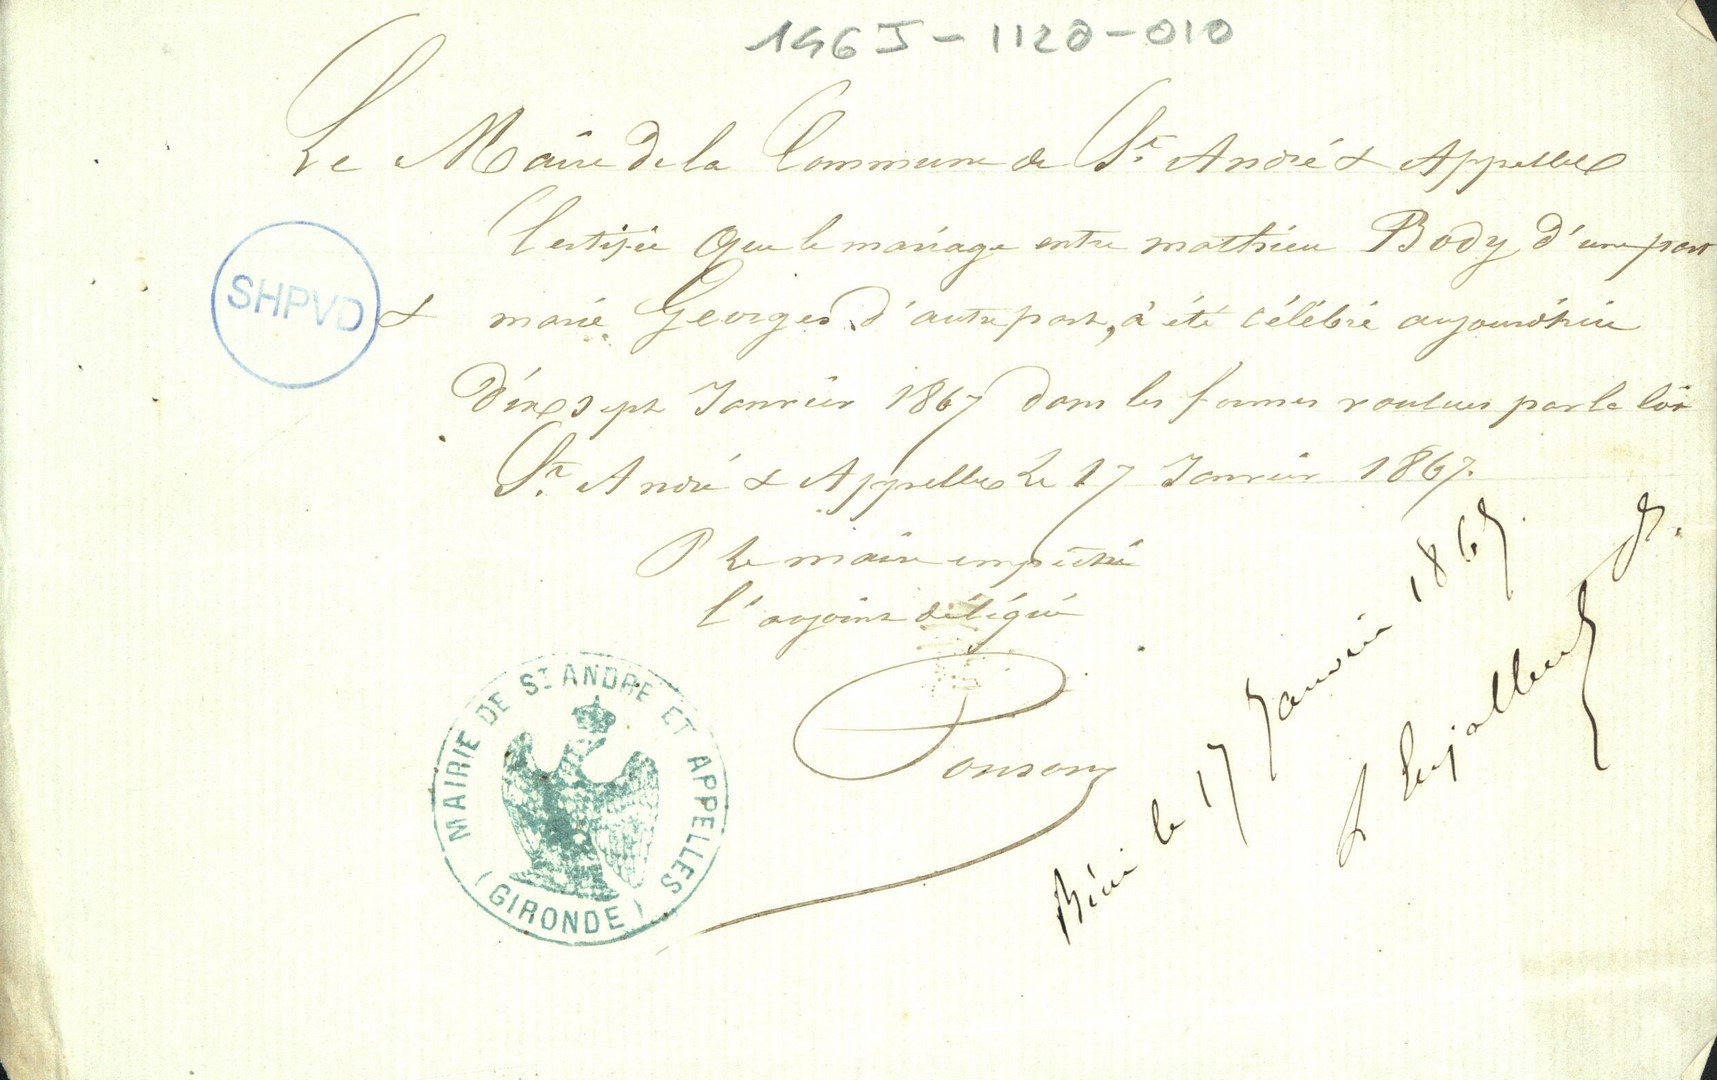 146J-1120-010
Le Maire de la Commune de St André & Appelles
Certifie que le mariage entre mathieu Body d'une part
SHPVD
& marie Georges d'autre part, à été célébré aujourd'hui
dix sept Janvier 1867 dans les formes voulues par la loi
St André & Appelles le 17 Janvier 1867.
P le maire empêché
l'adjoint délégué
Ponson
MAIRIE DE ST ANDRE ET APPELLES
(GIRONDE)
Béni le 17 Janvier 1867